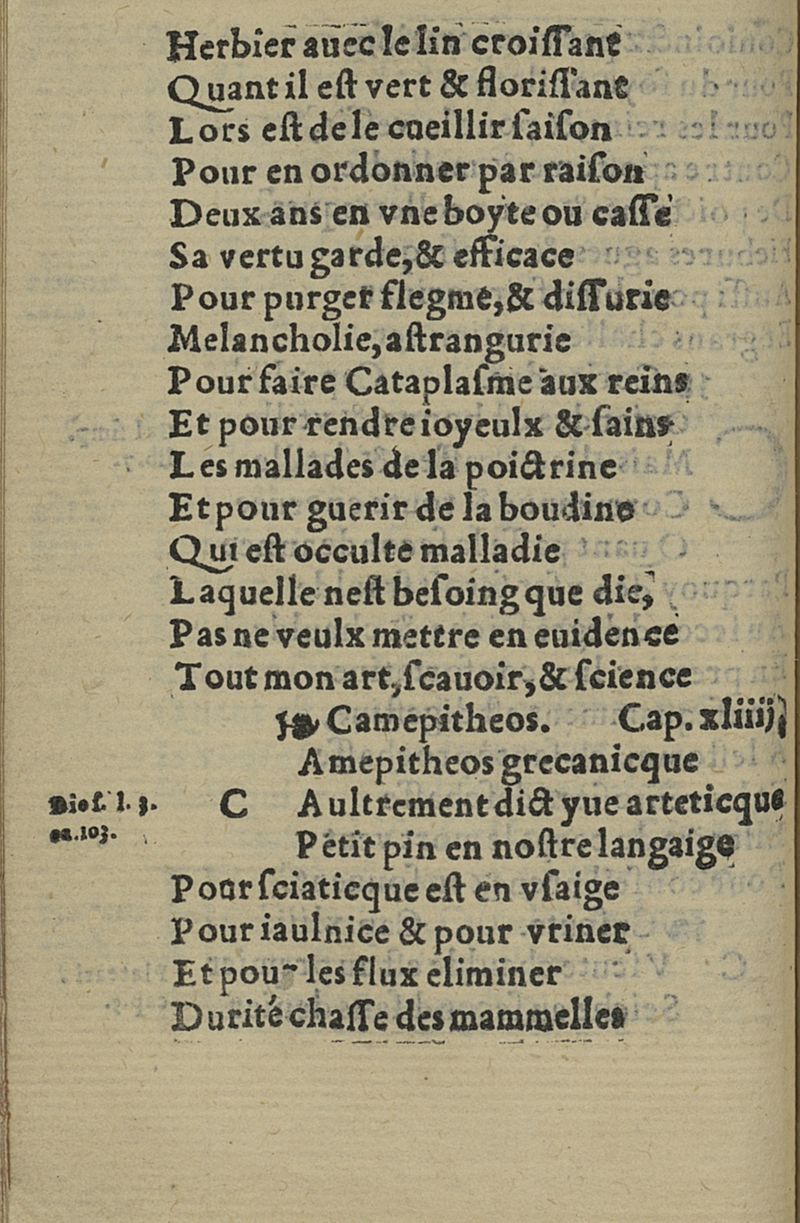 Herbier auec le lin croiſſant
Quant il eſt vert & floriſſant
Lors eſt de le cueillir ſaiſon
Pour en ordonner par raiſon
Deux ans en vne boyte ou caſſe
Sa vertu garde,& efficace
Pour purger flegme,& diſſurie
Melancholie,aſtrangurie
Pour faire Cataplaſme aux reins
Et pour rendre ioyeulx & ſains
Les mallades de la poictrine
Et pour guerir de la boudine
Qui eſt occulte malladie
Laquelle neſt beſoing que die,
Pas ne veulx mettre en euidence
Tout mon art,ſcauoir,& ſcience
Camepitheos. Cap. xliiij
Amepitheos grecanicque
Dioſ. l. 3. C Aultrement dict yue arteticque
ca.103. Petit pin en noſtre langaige
Pour ſciaticque eſt en vſaige
Pour iaulnice & pour vriner
Et pour les flux eliminer
Durité chaſſe des mammelles